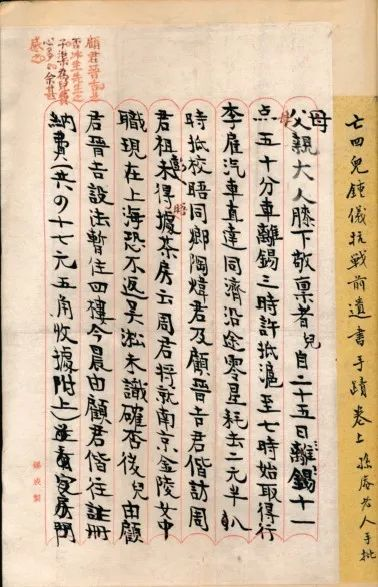 七四兒鍾儀抗戰前遺書手蹟卷上 孫庵老人手批
母
父親大人膝下敬稟者兒自二十五日離錫十一
点五十分車離錫三時許抵滬至七時始取得行
李雇汽車直達同濟沿途零星耗去二元半八
時抵校晤同鄉陶煒君及顧晉吉君偕訪周
君祖彭未得晤據茶房云周君將就南京金陵女中
職現在上海恐不返吴淞未識確否後兒由顧
君晉吉設法暫住四樓今晨由顧君偕往註冊
納費(共の十七元五角收據附上)並定房門
顧君晉吉
冰生先生之
子渠為兒費
心多余甚
感之